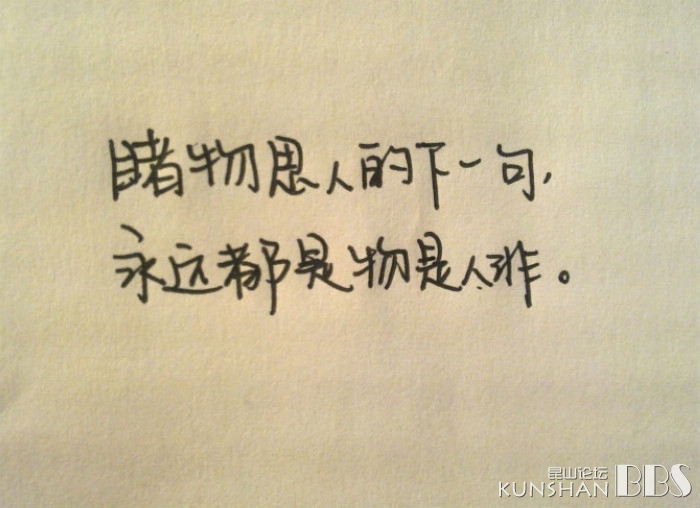 睹物思人的下一句,
永远都是物是人非。
昆山论坛
KUNSHAN BBS